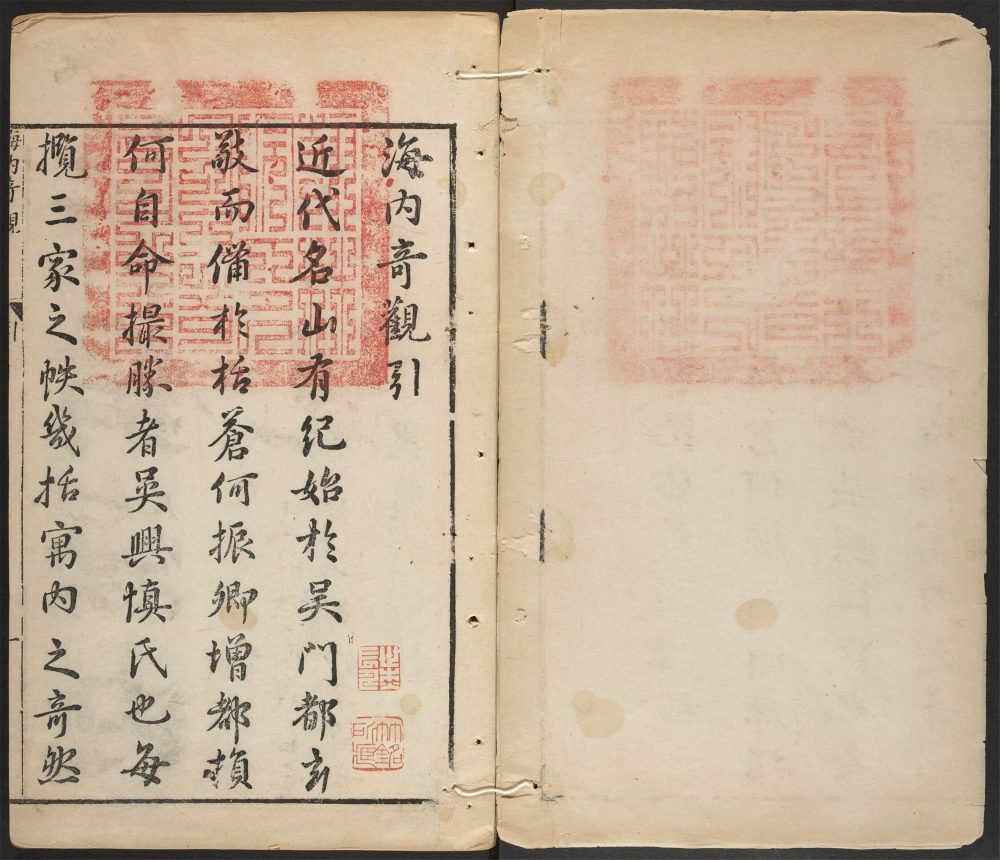 海内奇觀引
近代名山有紀始於吴門都玄
敬而俻於栝蒼何振卿增都損
何自命撮勝者吴興慎氏也每
攬三家之帙幾括寓内之奇然
海内奇觀
引
一